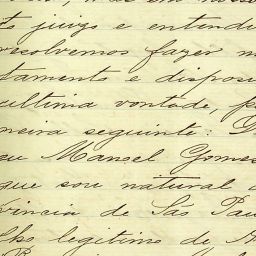 to juizo e entendi
resolvemos fazer n
tamento e dispos
ultima vontade, p
neira seguinte: D
eu Manoel Gomes
que sou natural
vincia de São Pau
lho legitimo de A